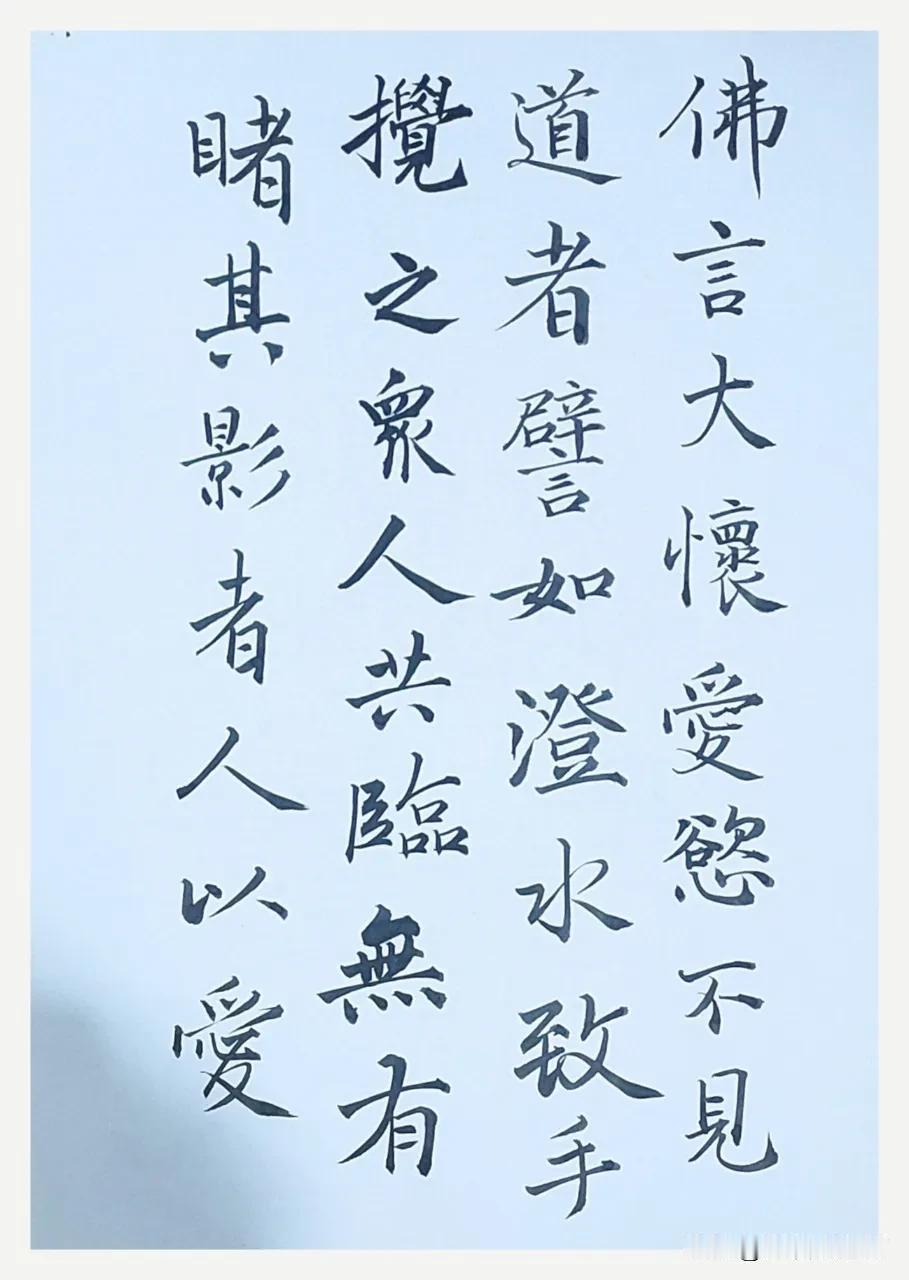 佛言大懷愛慾不見
道者譬如澄水致手
攪之衆人共臨無有
睹其影者人以愛